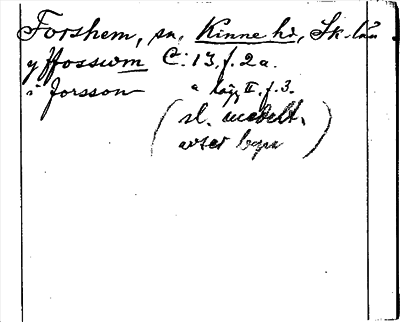 Forshem, sn, Kinne hd, Sk. län
y fforssom C: 13, f. 2 a.
i Forsson a lägg II. f. 3.
(sl. medelt.
avser byn)